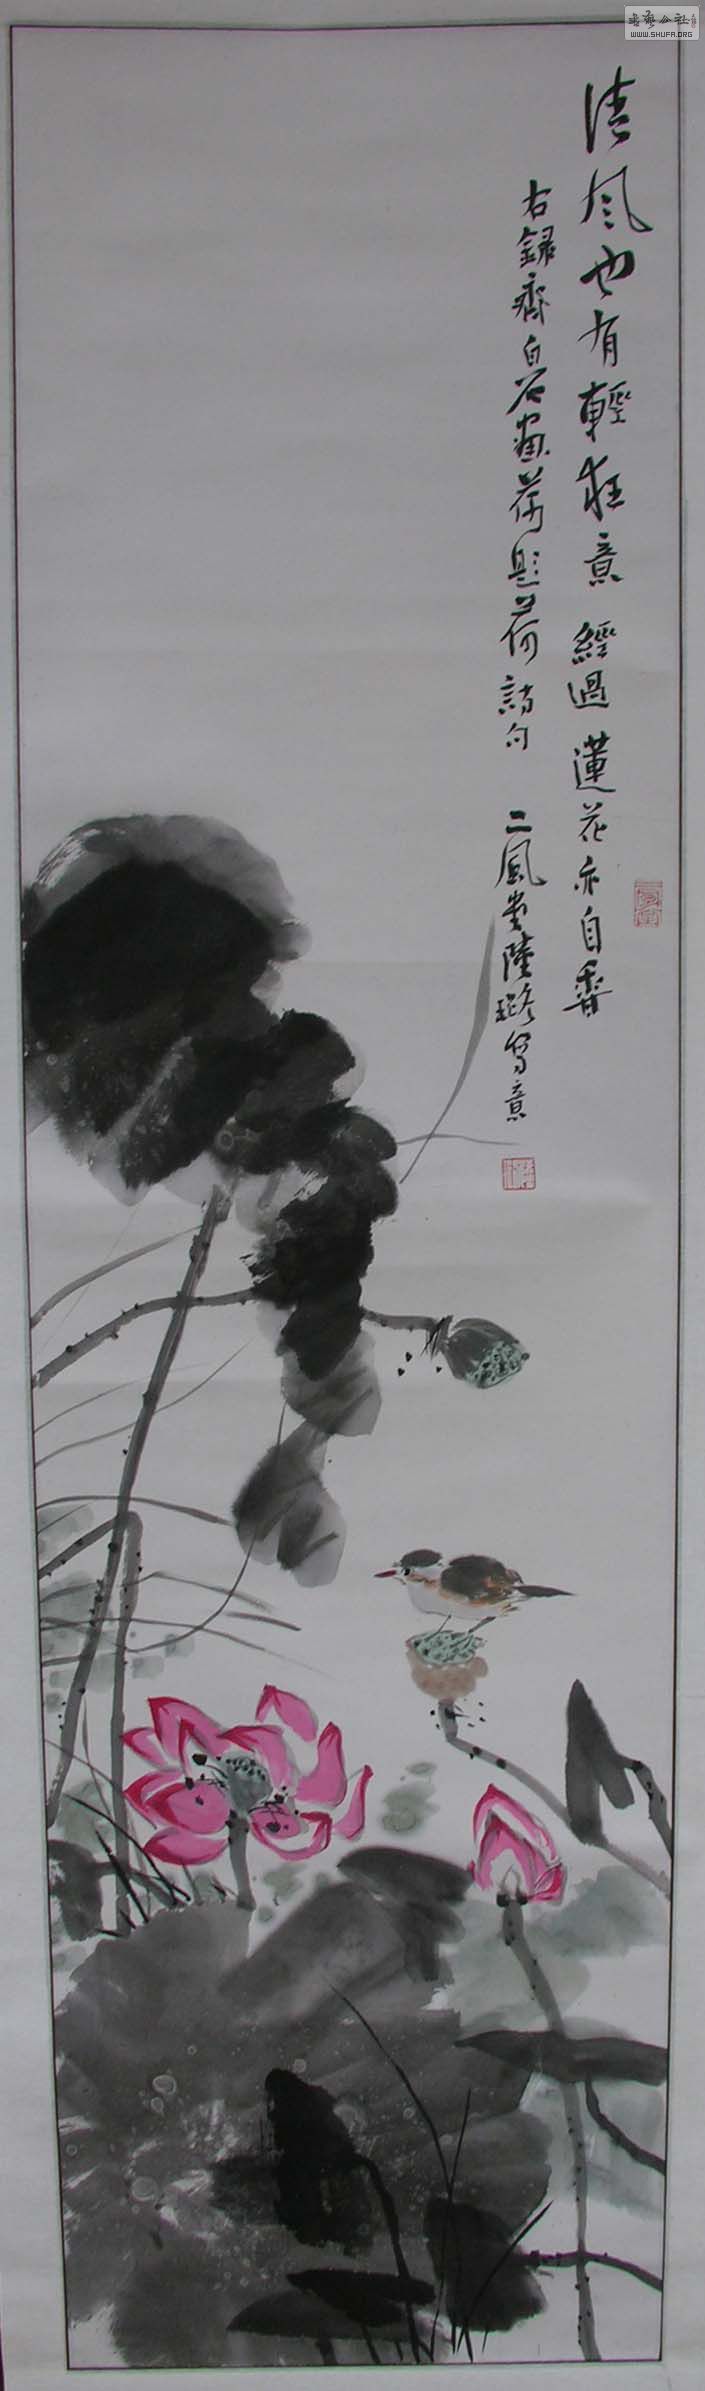 清风也有輕狂意 經過蓮花亦自香
右録齊白石畫荷題荷詩句 二風堂陸璐写意
WWW.SHUFA.ORG